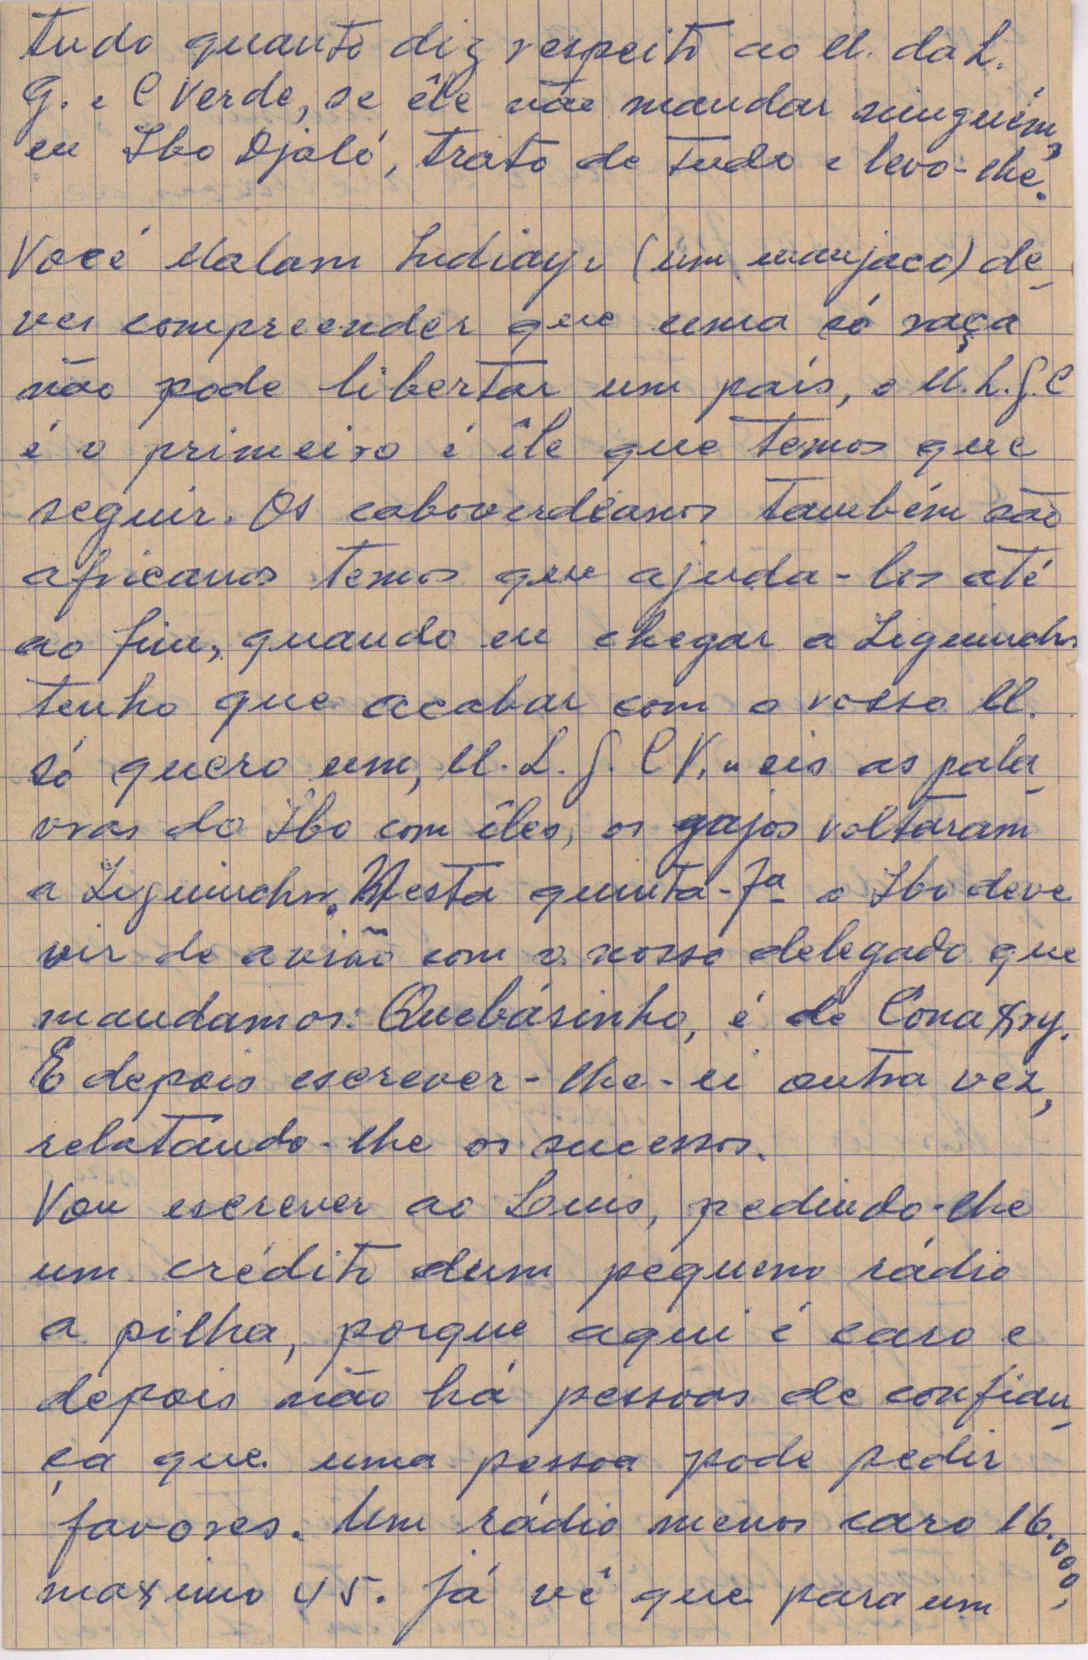 tudo quanto diz respeito ao M. da L.
G. e C Verde, se êle não mandar ninguém,
eu Ibo Djaló, trato de tudo e levo-lhe.
Você Malam Indiaye (um manjaco) de-
ver compreender que uma só raça
não pode libertar um país, o M.L.G.C
é o primeiro é êle que temos que
seguir. Os caboverdeanos também são
africanos temos que ajuda-los até
ao fim, quando eu chegar a Ziguinchor
tenho que acabar com o vosso M.
só quero um, M.L.G.CV." eis as pala-
vras do Ibo com êles, os gajos voltaram
a Ziguinchor. Nesta quinta-fa o Ibo deve
vir de avião com o nosso delegado que
mandamos: Quebásinho, é de Conakry.
E depois escrever-lhe-ei outra vez,
relatando-lhe os sucessos.
Vou escrever ao Luis, pedindo-lhe
um crédito dum pequeno rádio
a pilha, porque aqui é caro e
depois não há pessoas de confian-
ça que uma pessoa pode pedir
favores. Um rádio menos caro 16.000,
maximo 45. Já vê que para um